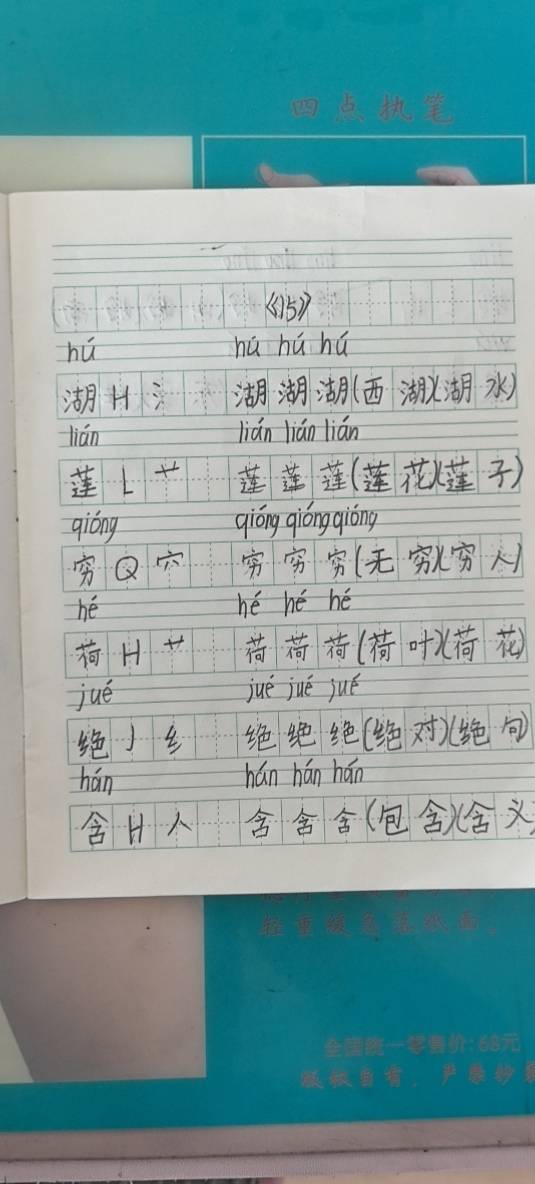 四点执笔
《15》
hú hú hú hú
湖 H 氵 湖 湖 湖(西 湖)(湖 水)
lián lián lián lián
莲 L 艹 莲 莲 莲(莲 花)(莲 子)
qióng qióng qióng qióng
穷 Q 穴 穷 穷 穷(无 穷)(穷 人)
hé hé hé hé
荷 H 艹 荷 荷 荷(荷 叶)(荷 花)
jué jué jué jué
绝 J 纟 绝 绝 绝(绝 对)(绝 句)
hán hán hán hán
含 H 人 含 含 含(包 含)(含 义)
轻重缓急落纸面。
全国统一零售价:68元
版权自有,严禁抄